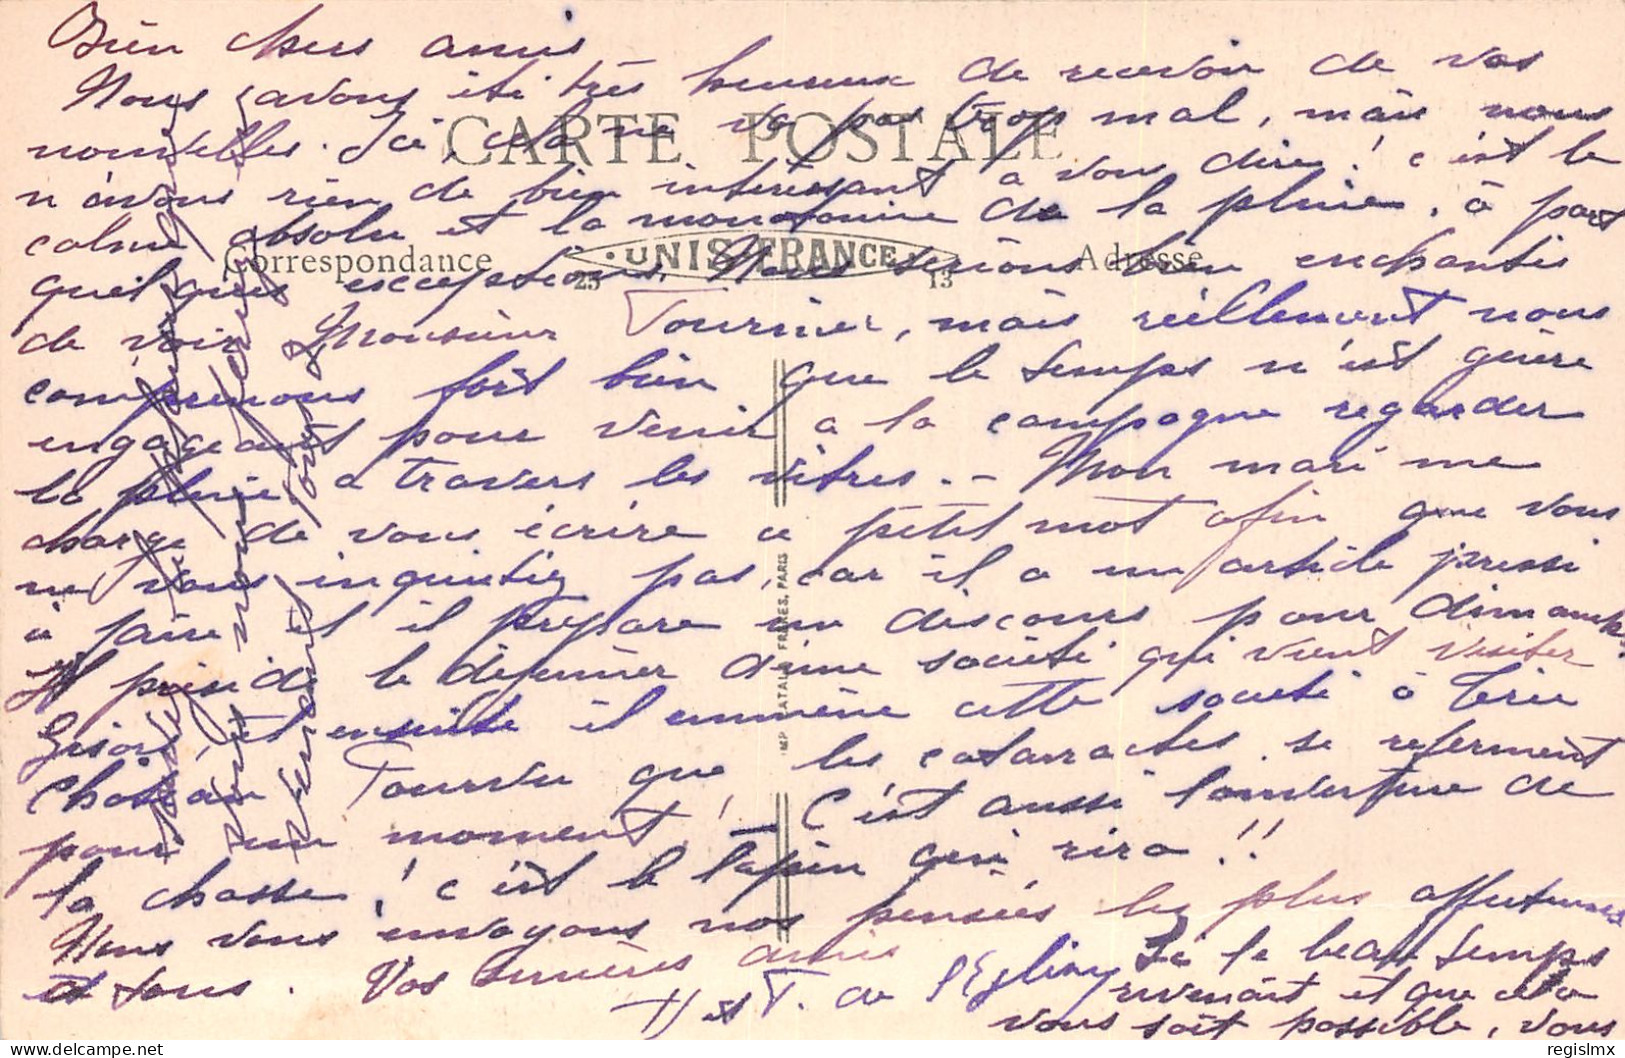 Bien chers amis
Nous avons été très heureux de recevoir de vos
nouvelles. Ici, cela ne va pas trop mal, mais nous
n'avons rien de bien intéressant a vous dire ! c'est le
calme absolu et la monotonie de la pluie, à part
quelques exceptions. Nous serions bien enchantés
de voir Monsieur Tournier, mais réellement nous
comprenons fort bien que le temps n'est guère
engageant pour venir a la campagne regarder
la pluie a travers les vitres. - Mon mari me
charge de vous écrire ce petit mot afin que vous
ne vous inquiétiez pas, car il a un article pressé
à faire et il prépare un discours pour dimanche.
Il préside le déjeuner d'une société qui vient visiter
Gisors, et ensuite il emmène cette société à Trie
Château. Pourvu que les cataractes se referment
pour un moment ! C'est aussi l'ouverture de
la chasse, ! c'est le lapin qui rira !!
Nous vous envoyons nos pensées les plus affectueuses
et tous. Vos amis
H et T. de
Si le beau temps
revenait et que cela
vous soit possible, vous
CARTE POSTALE
Correspondance
·UNIS FRANCE·
23
13
Adresse
IMP. CATALA FRÈRES, PARIS
regislmx